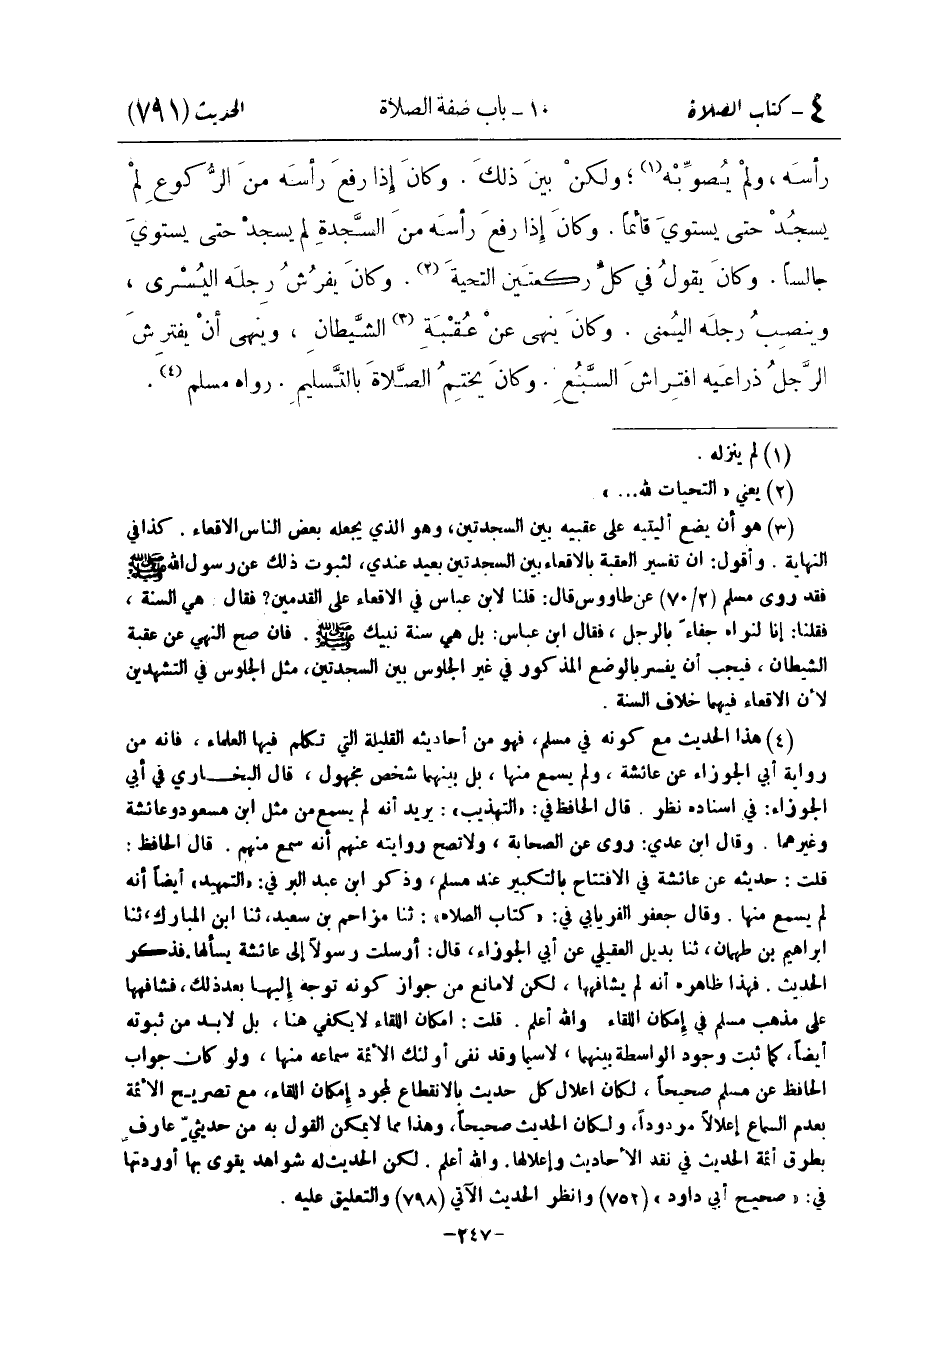 ٤ - كتاب الصلاة ١٠ - باب صفة الصلاة الحديث (٧٩١)
رأسَه ، ولمْ يُصوِّبْه(١) ؛ ولكنْ بينَ ذلكَ . وكانَ إذا رفعَ رأسَه منَ الرُّكوعِ لمْ
يسجُدْ حتى يستويَ قائماً . وكانَ إذا رفعَ رأسَه منَ السَّجدةِ لم يسجدْ حتى يستويَ
جالساً . وكانَ يقولُ في كلِّ ركعتَين التحيةَ (٢) . وكانَ يفرُشُ رجلَه اليُسْرى ،
وينصِبُ رجلَه اليُمنى . وكانَ ينهى عنْ عُقْبَةِ (٣) الشَّيطانِ ، وينهى أنْ يفترِشَ
الرَّجلُ ذراعَيه افتِراشَ السَّبُعِ . وكانَ يختِمُ الصَّلاةَ بالتَّسليمِ . رواه مسلم (٤) .
(١) لم ينزله .
(٢) يعني « التحيات لله... »
(٣) هو أن يضع أليتيه على عقبيه بين السجدتين، وهو الذي يجعله بعض الناس الاقعاء . كذا في
النهاية . وأقول: ان تفسير العقبة بالاقعاء بين السجدتين بعيد عندي، لثبوت ذلك عن رسول الله ﷺ
فقد روى مسلم (٧٠/٢) عن طاووس قال: قلنا لابن عباس في الاقعاء على القدمين؟ فقال هي السنة ،
فقلنا: إنا لنراه جفاءً بالرجل ، فقال ابن عباس: بل هي سنة نبيك ﷺ . فان صح النهي عن عقبة
الشيطان ، فيجب أن يفسر بالوضع المذكور في غير الجلوس بين السجدتين، مثل الجلوس في التشهدين
لأن الاقعاء فيهما خلاف السنة .
(٤) هذا الحديث مع كونه في مسلم، فهو من أحاديثه القليلة التي تكلم فيها العلماء ، فانه من
رواية أبي الجوزاء عن عائشة ، ولم يسمع منها ، بل بينهما شخص مجهول ، قال البخاري في أبي
الجوزاء: في اسناده نظر . قال الحافظ في: «التهذيب»: يريد أنه لم يسمع من مثل ابن مسعود وعائشة
وغيرهما . وقال ابن عدي: روى عن الصحابة ، ولا تصح روايته عنهم أنه سمع منهم . قال الحافظ :
قلت : حديثه عن عائشة في الافتتاح بالتكبير عند مسلم، وذكر ابن عبد البر في: «التمهيد» أيضاً أنه
لم يسمع منها . وقال جعفر الفريابي في: «كتاب الصلاه» : ثنا مزاحم بن سعيد، ثنا ابن المبارك، ثنا
ابراهيم بن طهمان، ثنا بديل العقيلي عن أبي الجوزاء، قال: أرسلت رسولاً إلى عائشة يسألها. فذكر
الحديث . فهذا ظاهره أنه لم يشافهها ، لكن لا مانع من جواز كونه توجه إليها بعد ذلك، فشافهها
على مذهب مسلم في إمكان اللقاء والله أعلم . قلت : امكان اللقاء لا يكفي هنا ، بل لا بد من ثبوته
أيضاً، كما ثبت وجود الواسطة بينهما ، لاسيما وقد نفى أولئك الأئمة سماعه منها ، ولو كان جواب
الحافظ عن مسلم صحيحاً ، لكان اعلال كل حديث بالانقطاع لمجرد إمكان اللقاء، مع تصريح الأئمة
بعدم السماع إعلالاً مردوداً، ولكان الحديث صحيحاً، وهذا مما لا يمكن القول به من حديثيٍّ عارفٍ
بطرق أئمة الحديث في نقد الأحاديث وإعلالها. والله أعلم . لكن الحديث له شواهد يقوى بها أوردتها
في: « صحيح أبي داود » (٧٥٢) وانظر الحديث الآتي (٧٩٨) والتعليق عليه .
-٢٤٧-